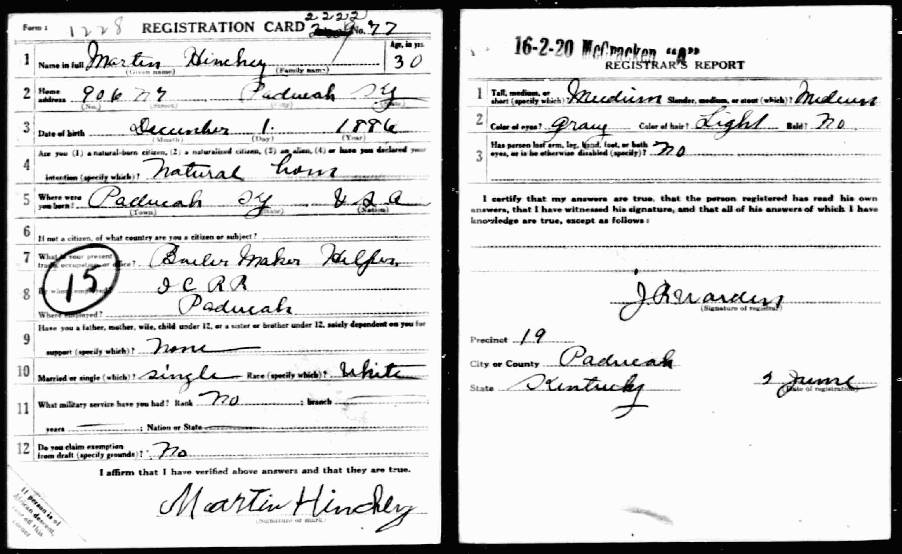 Form 1 1228 REGISTRATION CARD 2222 No. 77
1 Name in full Martin Hinchey Age, in yrs. 30
(Given name) (Family name)
2 Home address 906 N 7 Paducah Ky
(No.) (Street) (City) (State)
3 Date of birth December 1 1886
(Month) (Day) (Year)
Are you (1) a natural-born citizen, (2) a naturalized citizen, (3) an alien, (4) or have you declared your
4 intention (specify which)? Natural born
5 Where were you born? Paducah Ky U S A
(Town) (State) (Nation)
6 If not a citizen, of what country are you a citizen or subject?
7 What is your present trade, occupation or office? Boiler Maker Helper
15
8 By whom employed? I C R R
Where employed? Paducah
Have you a father, mother, wife, child under 12, or a sister or brother under 12, solely dependent on you for
9 support (specify which)? None
10 Married or single (which)? Single Race (specify which)? White
11 What military service have you had? Rank No ; branch
years ; Nation or State
12 Do you claim exemption from draft (specify grounds)? No
I affirm that I have verified above answers and that they are true.
Martin Hinchey
(Signature or mark)
If person is of
African descent,
corner
16-2-20 McCracken "A"
REGISTRAR'S REPORT
1 Tall, medium, or short (specify which)? Medium Slender, medium, or stout (which)? Medium
2 Color of eyes? Gray Color of hair? Light Bald? No
3 Has person lost arm, leg, hand, foot, or both eyes, or is he otherwise disabled (specify)? No
I certify that my answers are true, that the person registered has read his own
answers, that I have witnessed his signature, and that all of his answers of which I have
knowledge are true, except as follows:
(Signature of registrar)
Precinct 19
City or County Paducah
State Kentucky 5 June
(Date of registration)